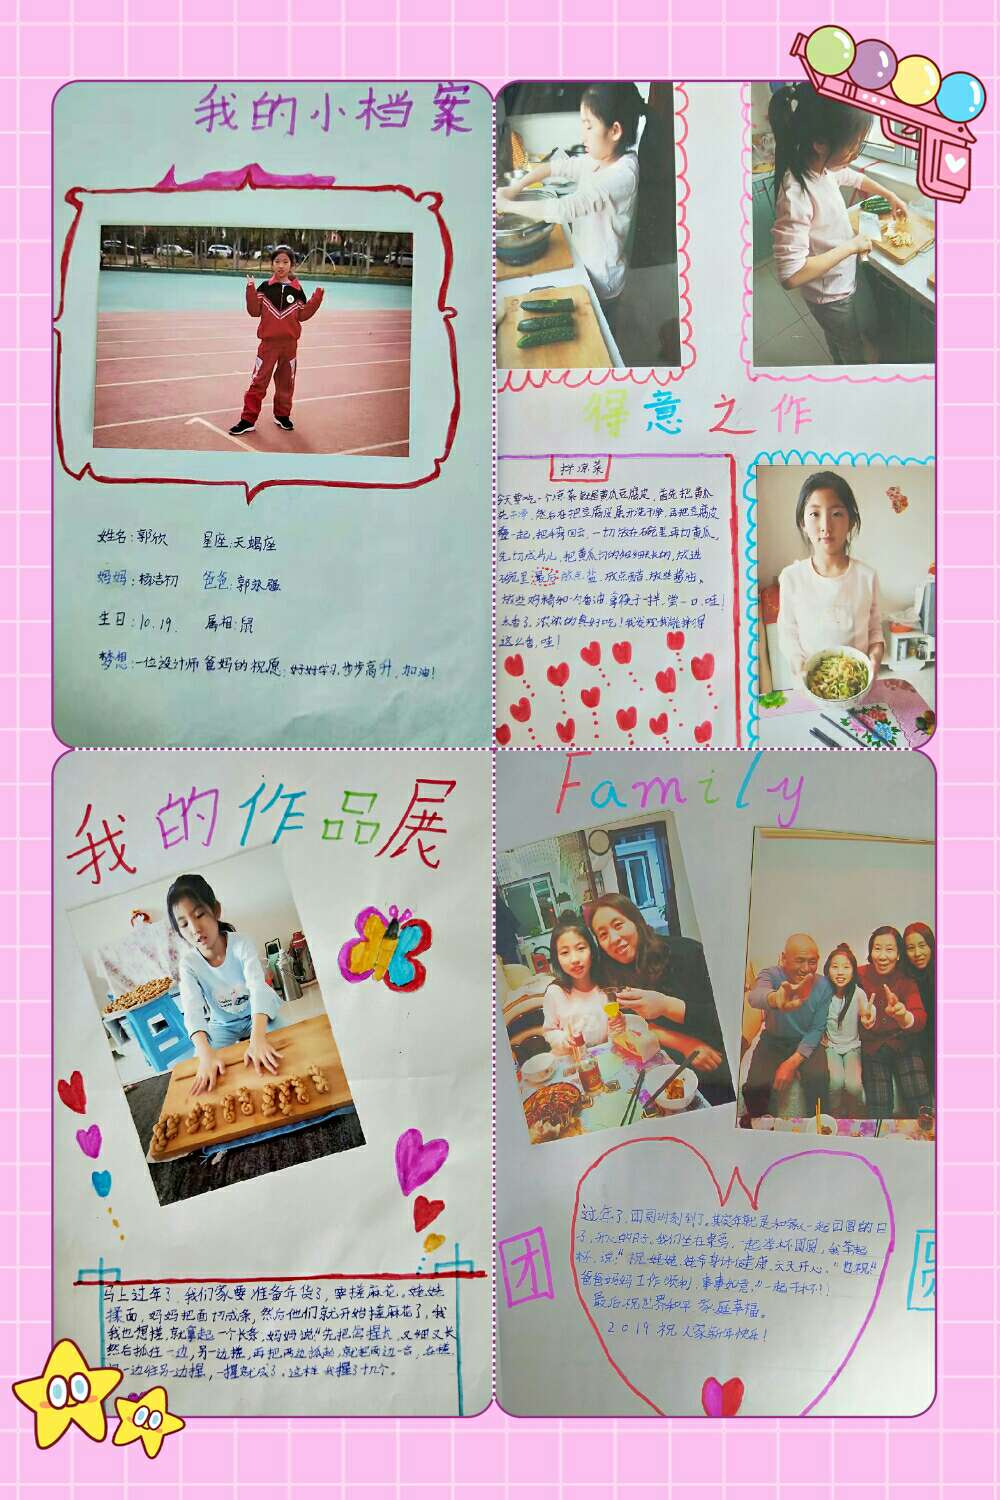 我的小档案
姓名:郭欣 星座:天蝎座
妈妈:杨洁初 爸爸:郭永强
生日:10.19. 属相:鼠
梦想:一位设计师 爸妈的祝愿:好好学习,步步高升,加油!
得意之作
拌凉菜
今天要吃一个凉菜就是黄瓜豆腐皮,首先把黄瓜
洗干净,然后在把豆腐皮展开洗干净,再把豆腐皮
叠一起,把
先切成片儿,把黄瓜切的细细长长的,放进
碗里最后放点盐,放点醋,放些酱油。
拿筷子一拌,尝一口,哇!
太香了,浓浓的真好吃!我发现我能拌得
这么香,哇!
我的作品展
马上过年了,我们家要准备年货了,要搓麻花。姥姥
揉面,妈妈把面切成条,然后他们就开始搓麻花了,我
我也想搓,就拿起一个长条,妈妈说“先把它搓长,又细又长
然后抓在一边,另一边搓,再把两边抓起,就把两边一合,在搓
一边往另一边搓,一搓就成了,这样我搓了十几个。
Family
过年了,团圆时刻到了。其实年就是和家人一起团圆的日
子,开心的日子。我们坐在桌旁,一起举杯团圆,我举起
杯,说“祝姥姥,姥爷身体健康,天天开心。”“也祝“
爸爸妈妈工作顺利,事事如意,”一起干杯!!
最后祝世界和平 家庭幸福。
2019 祝大家新年快乐!
团
圆